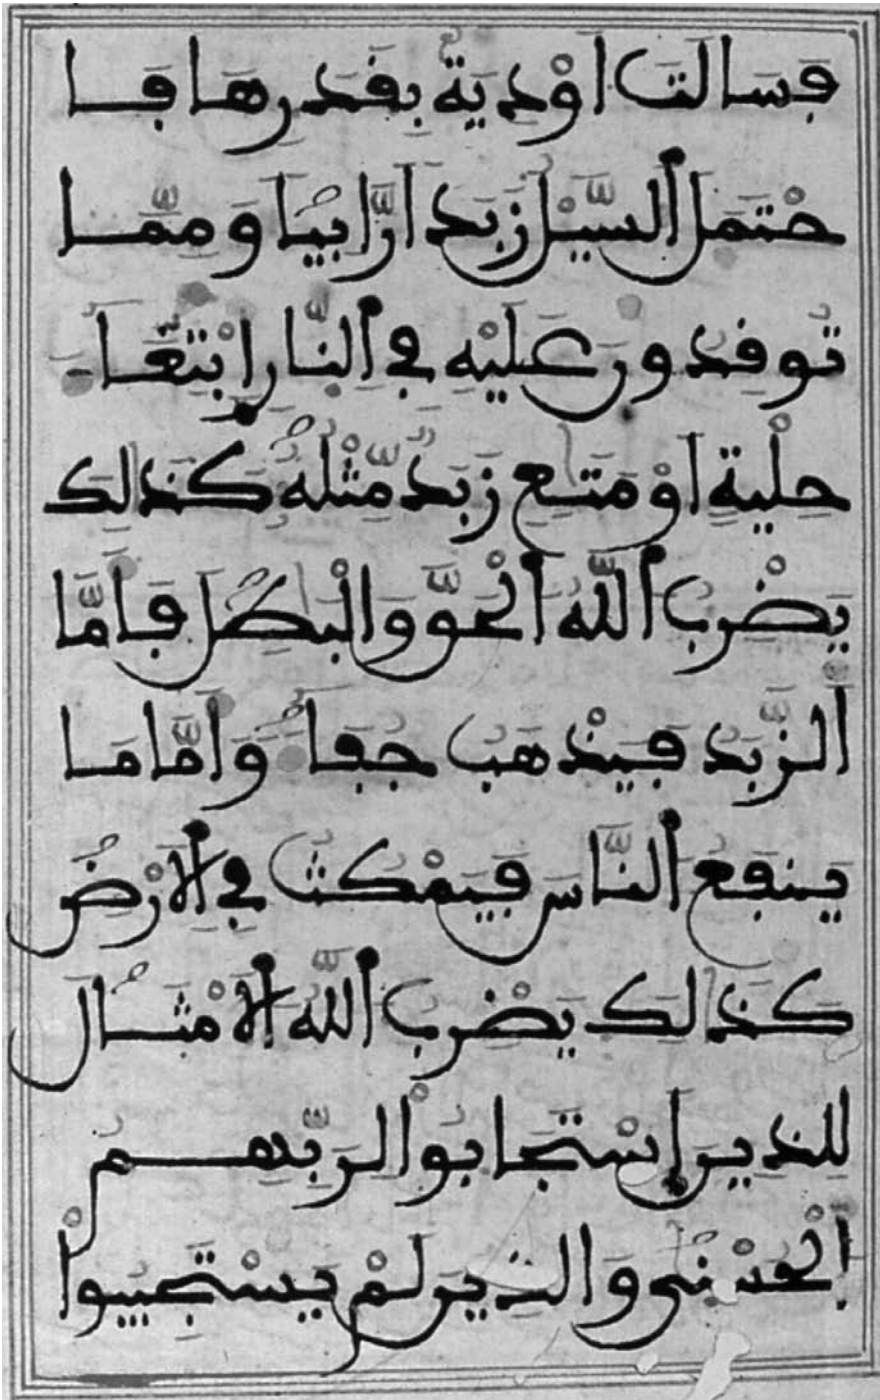 فَسَالَتَ اَوْدِيَةُۢ بِقَدَرِهَا فَا
حْتَمَلَ اَ۬لسَّيْلُ زَبَداٗ رَّابِياٗ وَمِمَّا
تُوقِدُونَ عَلَيْهِ فِے اِ۬لنّ۪ارِ اِ۪بْتِغَآءَ
حِلْيَةٍ اَوْ مَتَٰعٖ زَبَدٞ مِّثْلُهُۥ كَذَٰلِكَ
يَضْرِبُ اُ۬للَّهُ اُ۬لْحَقَّ وَالْبَٰطِلَ فَأَمَّا
اَ۬لزَّبَدُ فَيَذْهَبُ جُفَآءٗ وَأَمَّا مَا
يَنفَعُ اُ۬لنَّاسَ فَيَمْكُثُ فِے اِ۬لَارْضِ
كَذَٰلِكَ يَضْرِبُ اُ۬للَّهُ اُ۬لَامْثَالَ
لِلذِينَ اَ۪سْتَجَابُواْ لِرَبِّهِمُ
اُ۬لْحُسْنۭىٰ وَالذِينَ لَمْ يَسْتَجِيبُواْ